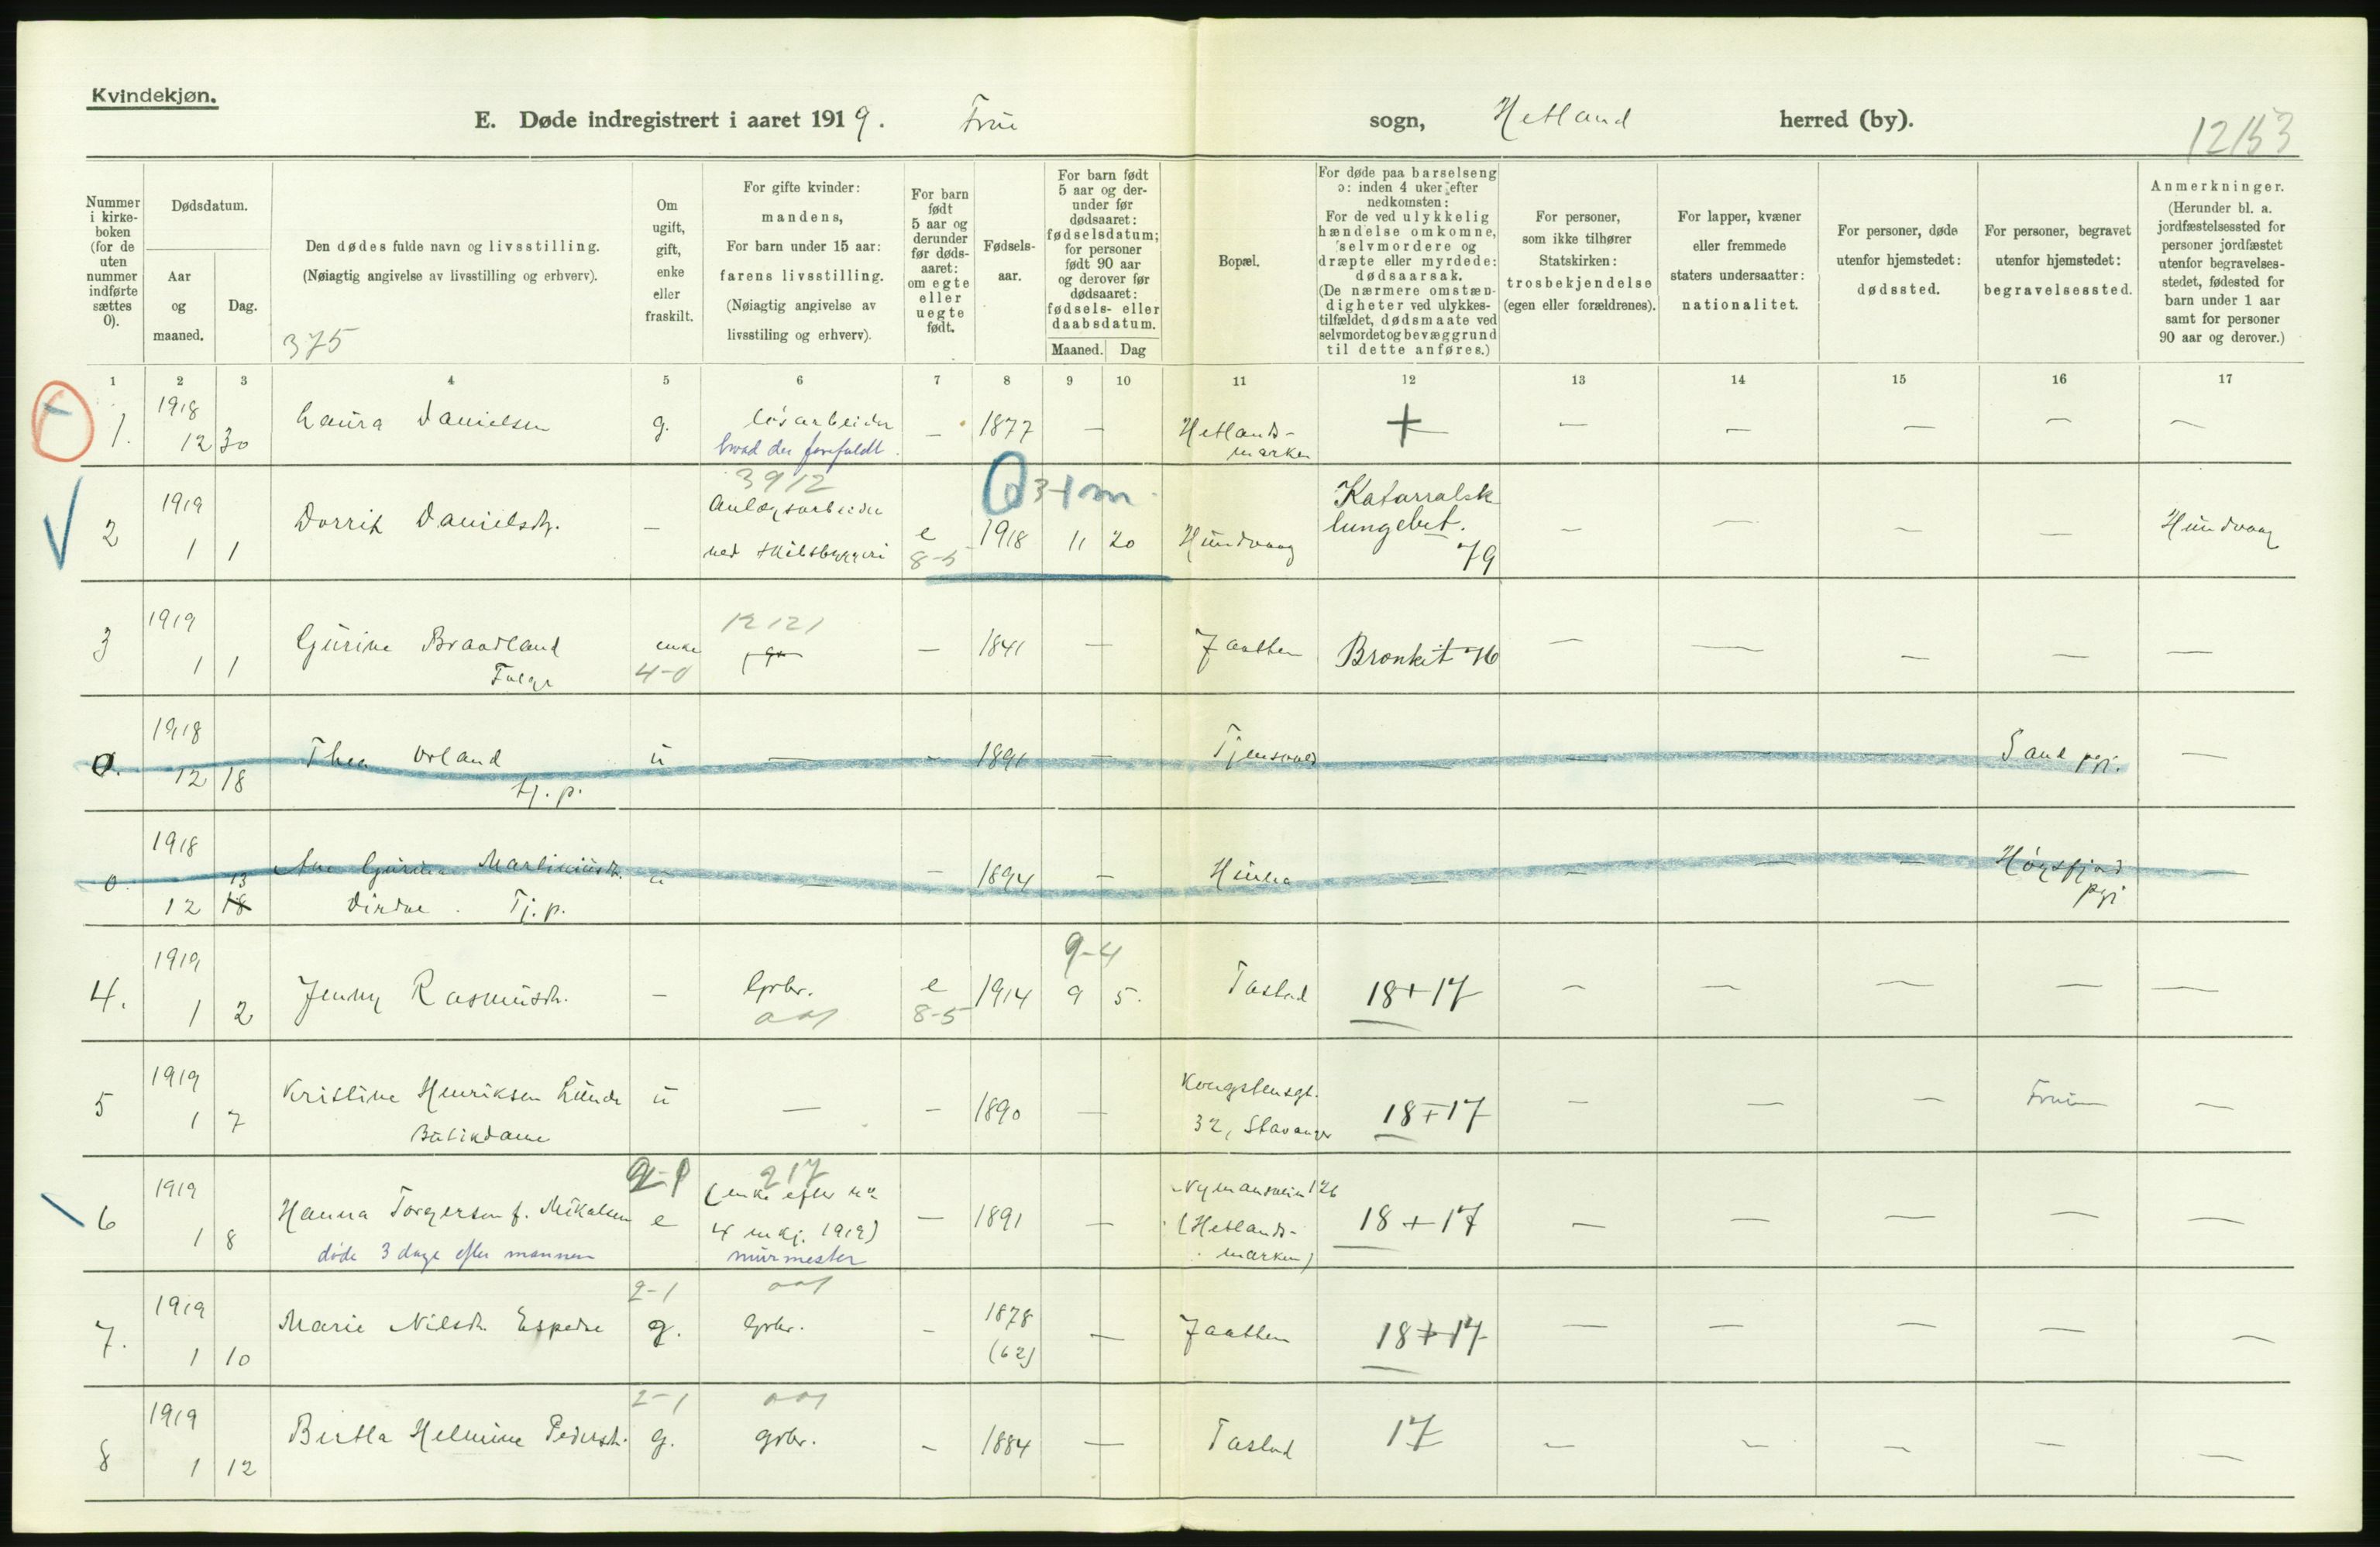 Kvindekjøn.
E. Døde indregistrert i aaret 1919. Frue sogn, Hetland herred (by).
12153
Nummer i kirke-boken (for de uten nummer indførte sættes 0).
Dødsdatum.
Aar og maaned.
Dag.
Den dødes fulde navn og livsstilling.
(Nøiagtig angivelse av livsstilling og erhverv).
375
Om ugift, gift, enke eller fraskilt.
For gifte kvinder: mandens,
For barn under 15 aar: farens livsstilling.
(Nøiagtig angivelse av livsstiling og erhverv).
For barn født 5 aar og derunder før døds-aaret: om egte eller uegte født.
Fødsels-aar.
For barn født 5 aar og der-under før dødsaaret: fødselsdatum; for personer født 90 aar og derover før dødsaaret: fødsels- eller daabsdatum.
Maaned. Dag
Bopæl.
For døde paa barselseng ɔ: inden 4 uker efter nedkomsten:
For de ved ulykkelig hændelse omkomne, selvmordere og dræpte eller myrdede: dødsaarsak.
(De nærmere omstæn-digheter ved ulykkes-tilfældet, dødsmaate ved selvmordet og bevæggrund til dette anføres.)
For personer, som ikke tilhører Statskirken: trosbekjendelse (egen eller forældrenes).
For lapper, kvæner eller fremmede staters undersaatter: nationalitet.
For personer, døde utenfor hjemstedet: dødssted.
For personer, begravet utenfor hjemstedet: begravelsessted.
Anmerkninger.
(Herunder bl. a. jordfæstelsessted for personer jordfæstet utenfor begravelses-stedet, fødested for barn under 1 aar samt for personer 90 aar og derover.)
1 2 3 4 5 6 7 8 9 10 11 12 13 14 15 16 17
1918
1. 12 30 Laura Danielsen g. løsarbeider — 1877 — Hetlands-marken + — — — — —
hvad der forefaldt.
3912
3+m
1919
2 1 1 Dorrit Danielsdt. — Anlægsarbeider ved skibsbyggeri e 1918 11 20 Hundvaag Katarralsk lungebet. 79 — — — — Hundvaag
8-5
12121
1919
3 1 1 Gurine Braadland enke — 1841 — Jaatten Bronkit 76 — — — — —
4-0
1918
0. 12 18 Thea ü — — 1891 — Tjensvold — — — — Sand pgj. —
tj. p.
1918
0. 12 13 18 Ane Gurine Martiniusdt. ü — — 1894 — Hinna — — — — Høgsfjord pgj —
Dirdal. Tj. p.
9-4
1919
4. 1 2 Jenny Rasmusdt. — Grbr. e 1914 9 5. Tastad 18+17 — — — — —
001 8-5
1919
5 1 7 Kristine Henriksen Lunde ü — — 1890 — Kongstensgt. 32, Stavanger 18+17 — — — Frue —
Butikdame
217
1919
6 1 8 Hanna Torgersen f. Mikalsen e (enke efter nr. 4 mkj. 1919) — 1891 — Nymansvein 126 (Hetlands-marken) 18+17 — — — — —
døde 3 dage efter mannen murmester
2-1 001
1919
7. 1 10 Marie Nilsdt. Espedal g. Grbr. — 1878 (62) — Jaatten 18+17 — — — — —
2-1 001
1919
8 1 12 Bertha Helmine Pedersdt. g. grbr. — 1884 — Tastad 17 — — — — —